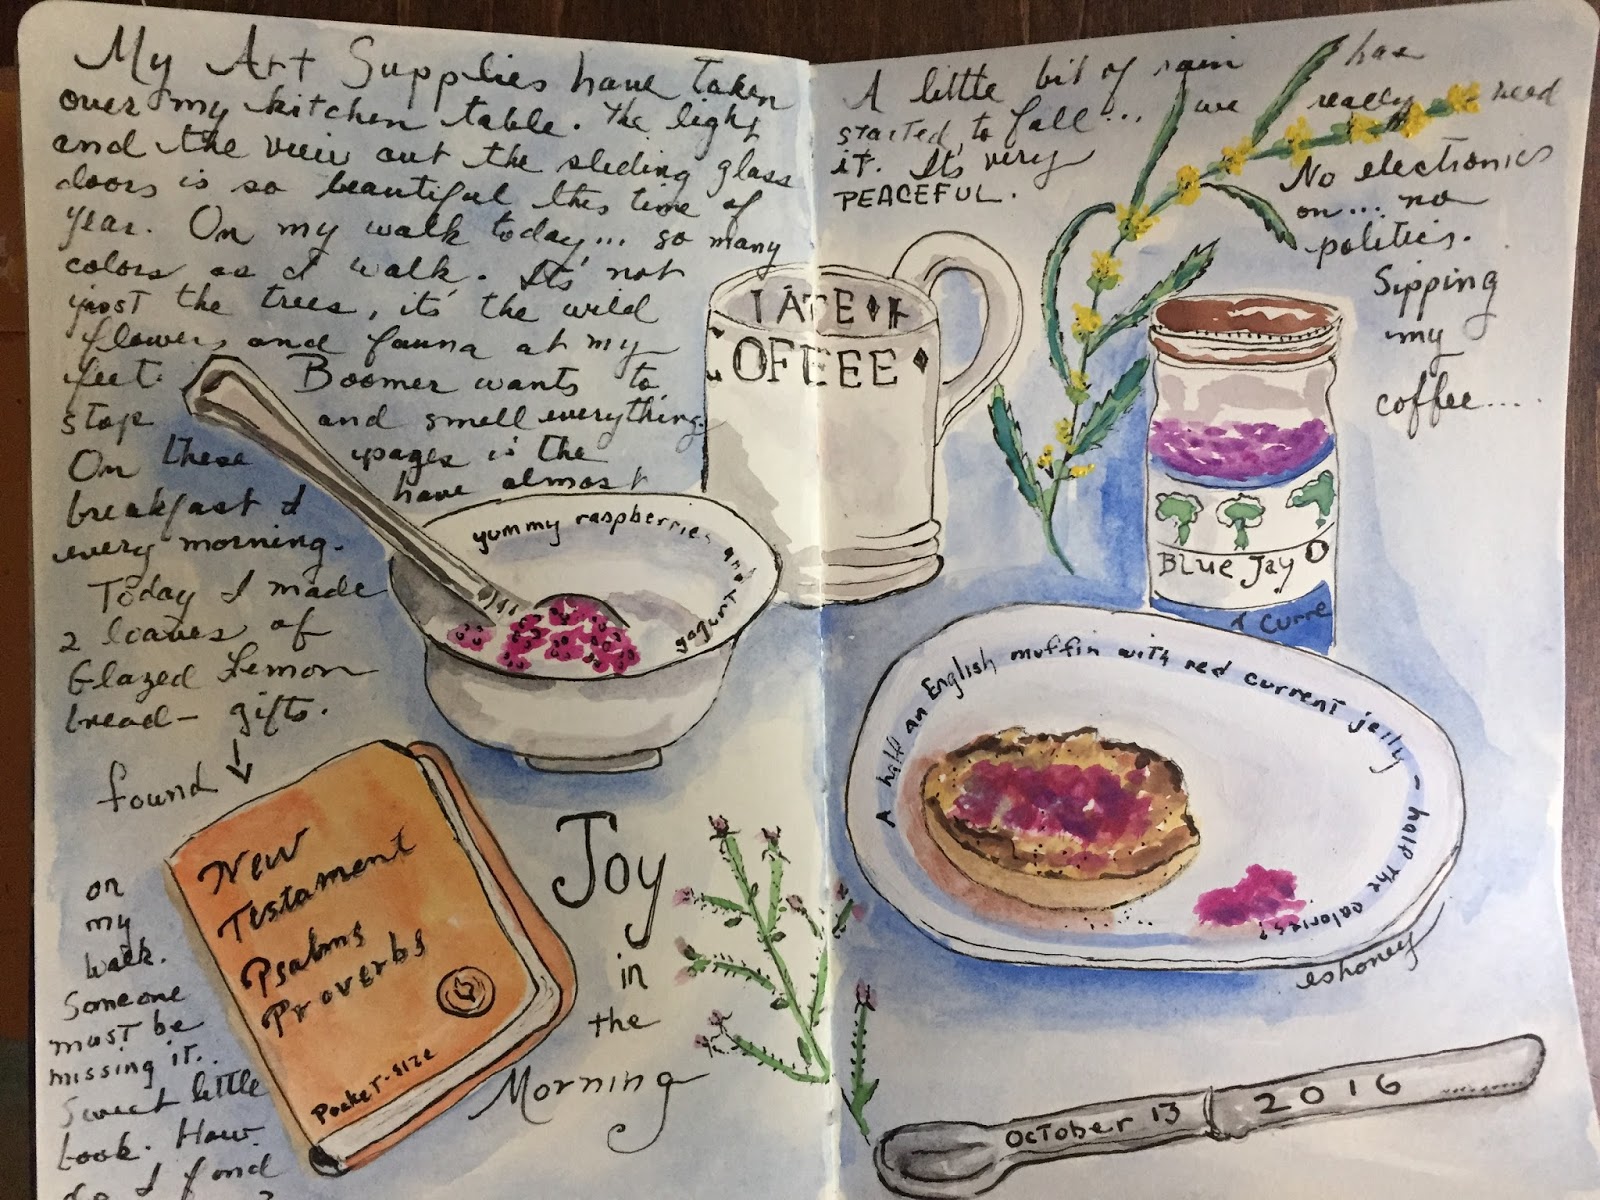 My Art Supplies have taken
over my kitchen table. The light
and the view out the sliding glass
doors is so beautiful this time of
year. On my walk today... so many
colors as I walk. It's not
just the trees, it's the wild
flowers and fauna at my
feet. Boomer wants to
stop and smell everything.
On these pages is the
breakfast I have almost
every morning.
Today I made
2 loaves of
Glazed Lemon
bread - gifts.
found
on
my
walk.
Someone
must be
missing it..
Sweet little
book. How
do I find
?
yummy raspberries and
yogurt
New
Testament
Psalms
Proverbs
Pocket-size
Joy
in
the
Morning
A little bit of rain has
started to fall... we really need
it. It's very
PEACEFUL.
No electronics
on... no
politics.
Sipping
my
coffee....
OFFEEE
BLUE JAY O
Curre
A half an English muffin with red current jelly - half the calories?
eshoney
OCTOBER 13 2016